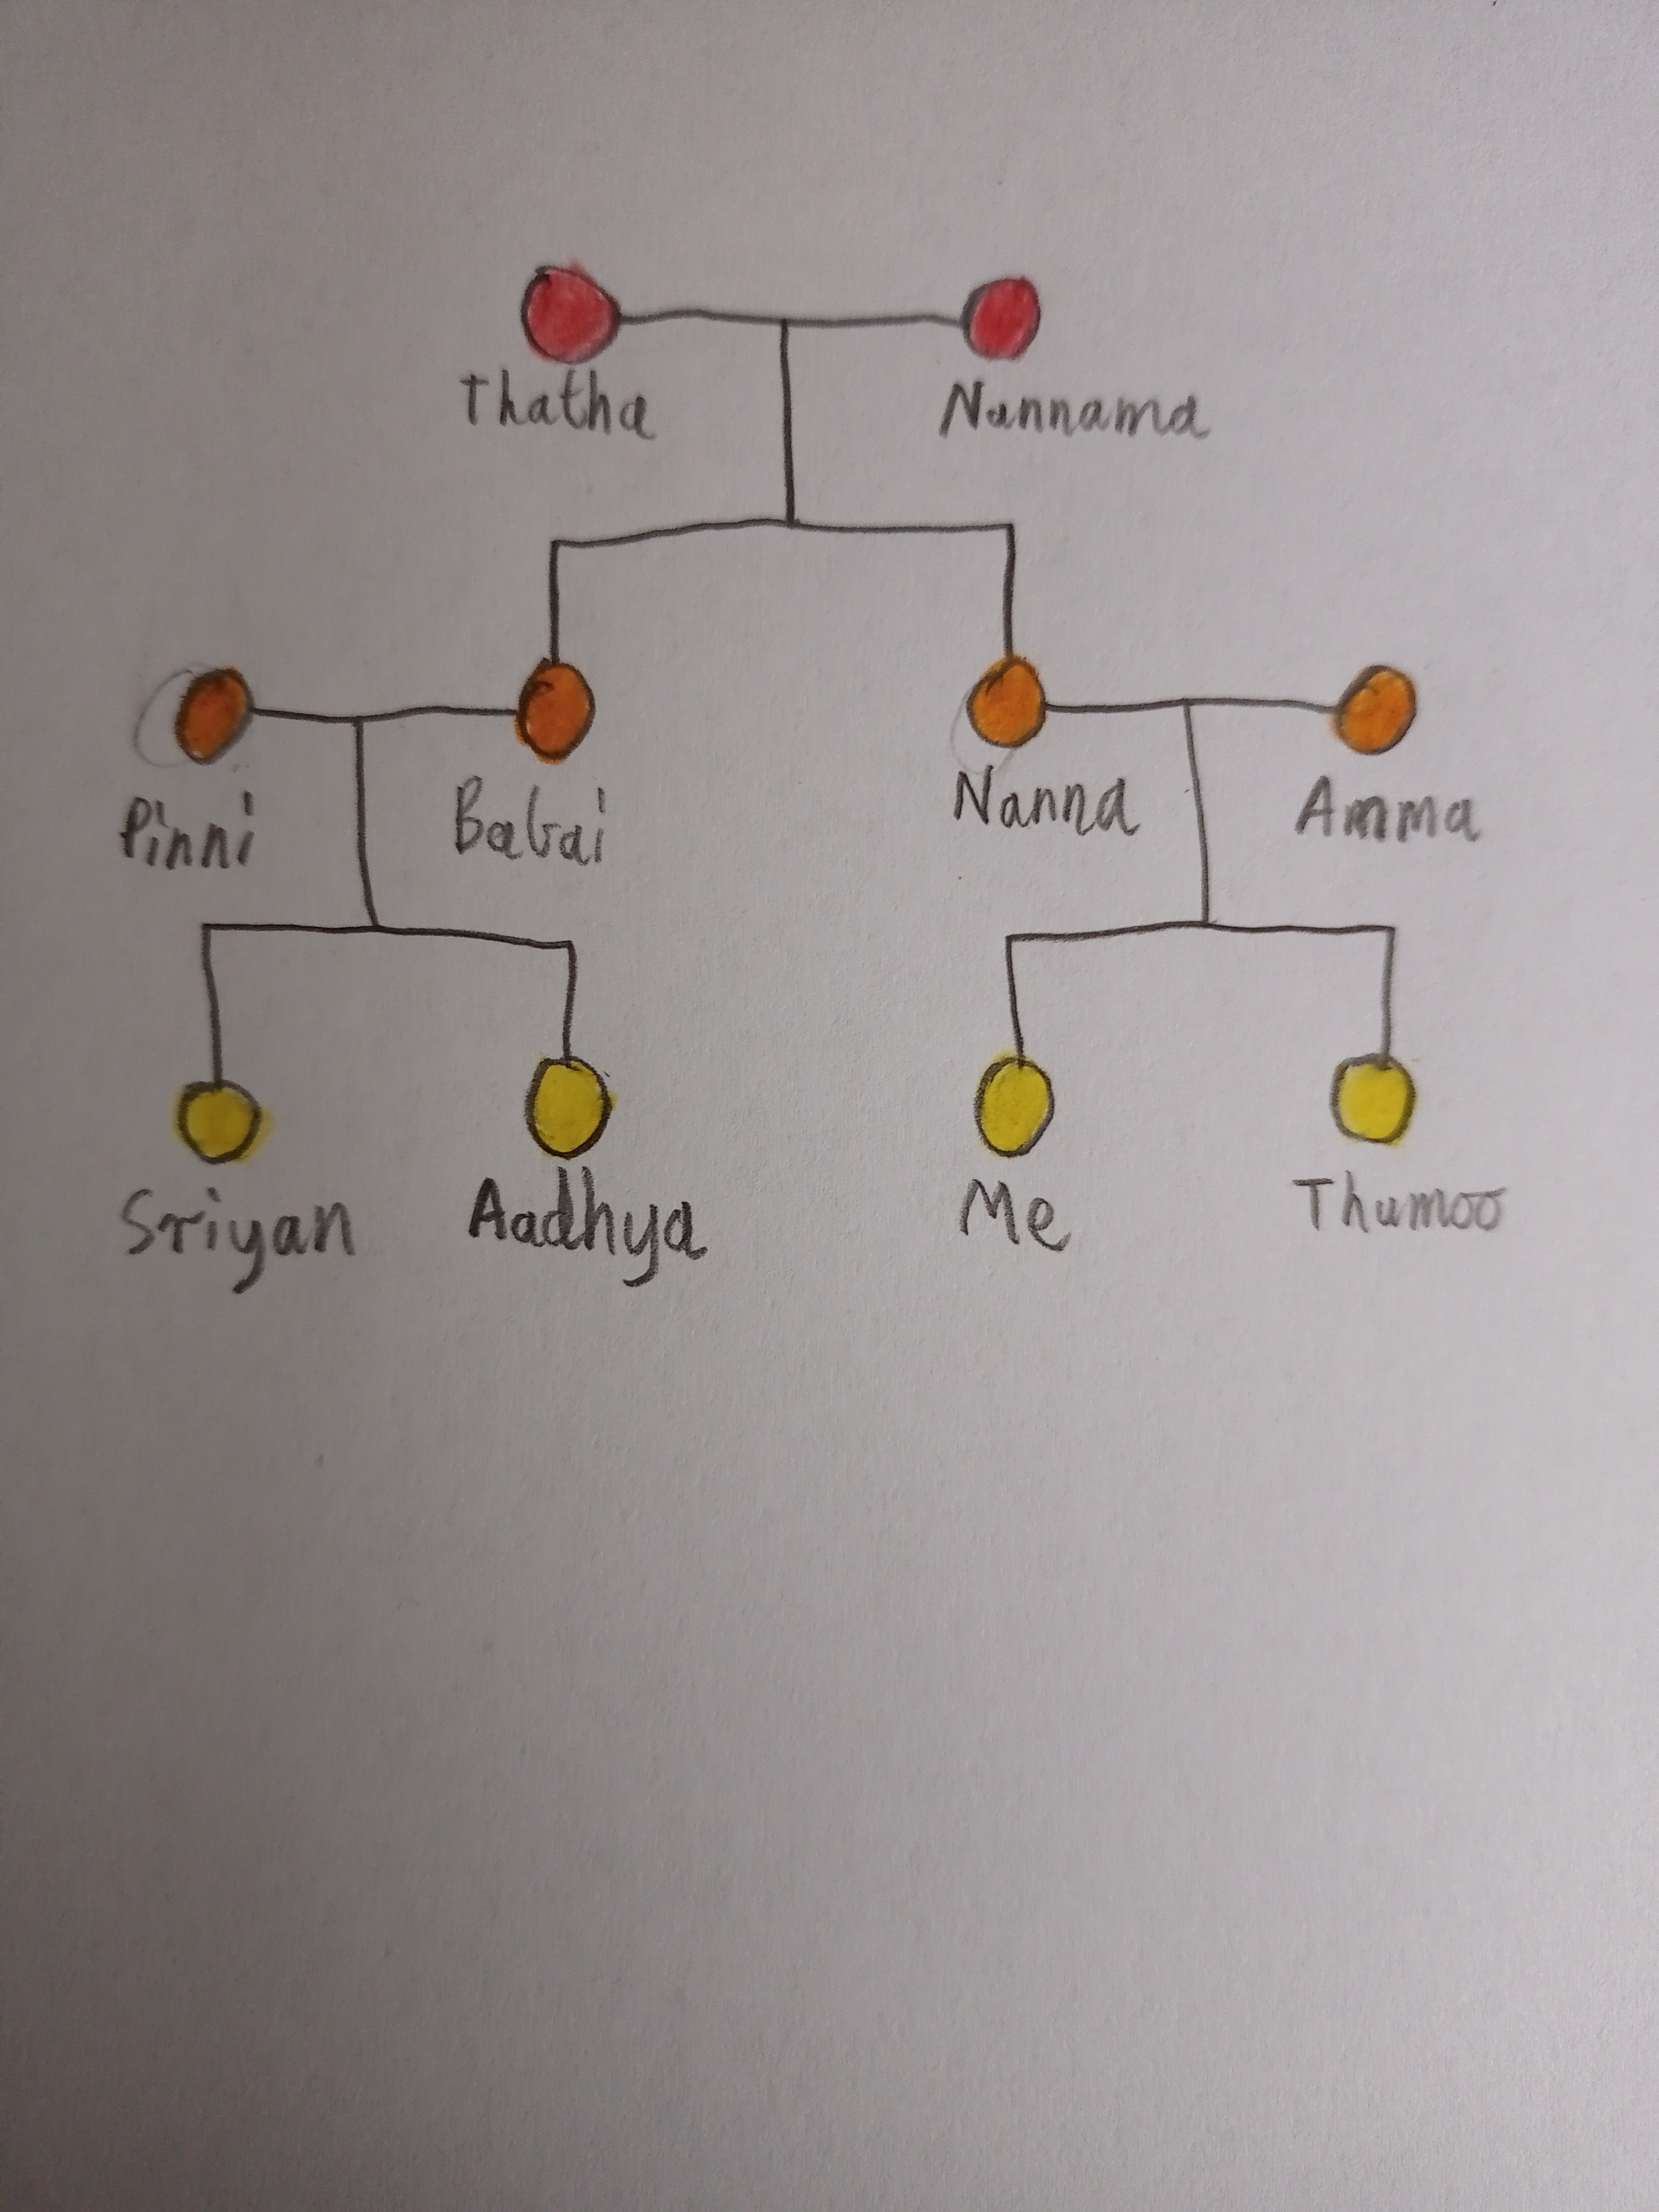 Thatha Nannama
Pinni Babai Nanna Amma
Sriyan Aadhya Me Thumoo